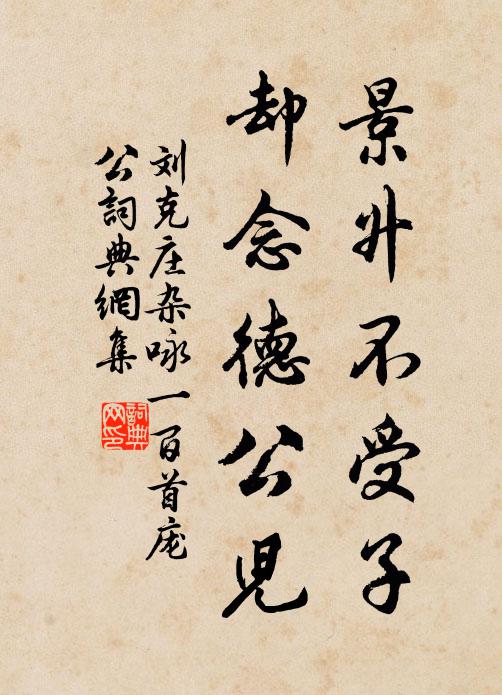 景升不受子
却念德公児
刘克庄杂咏一百首庞
公詞典網集
詞典
网印